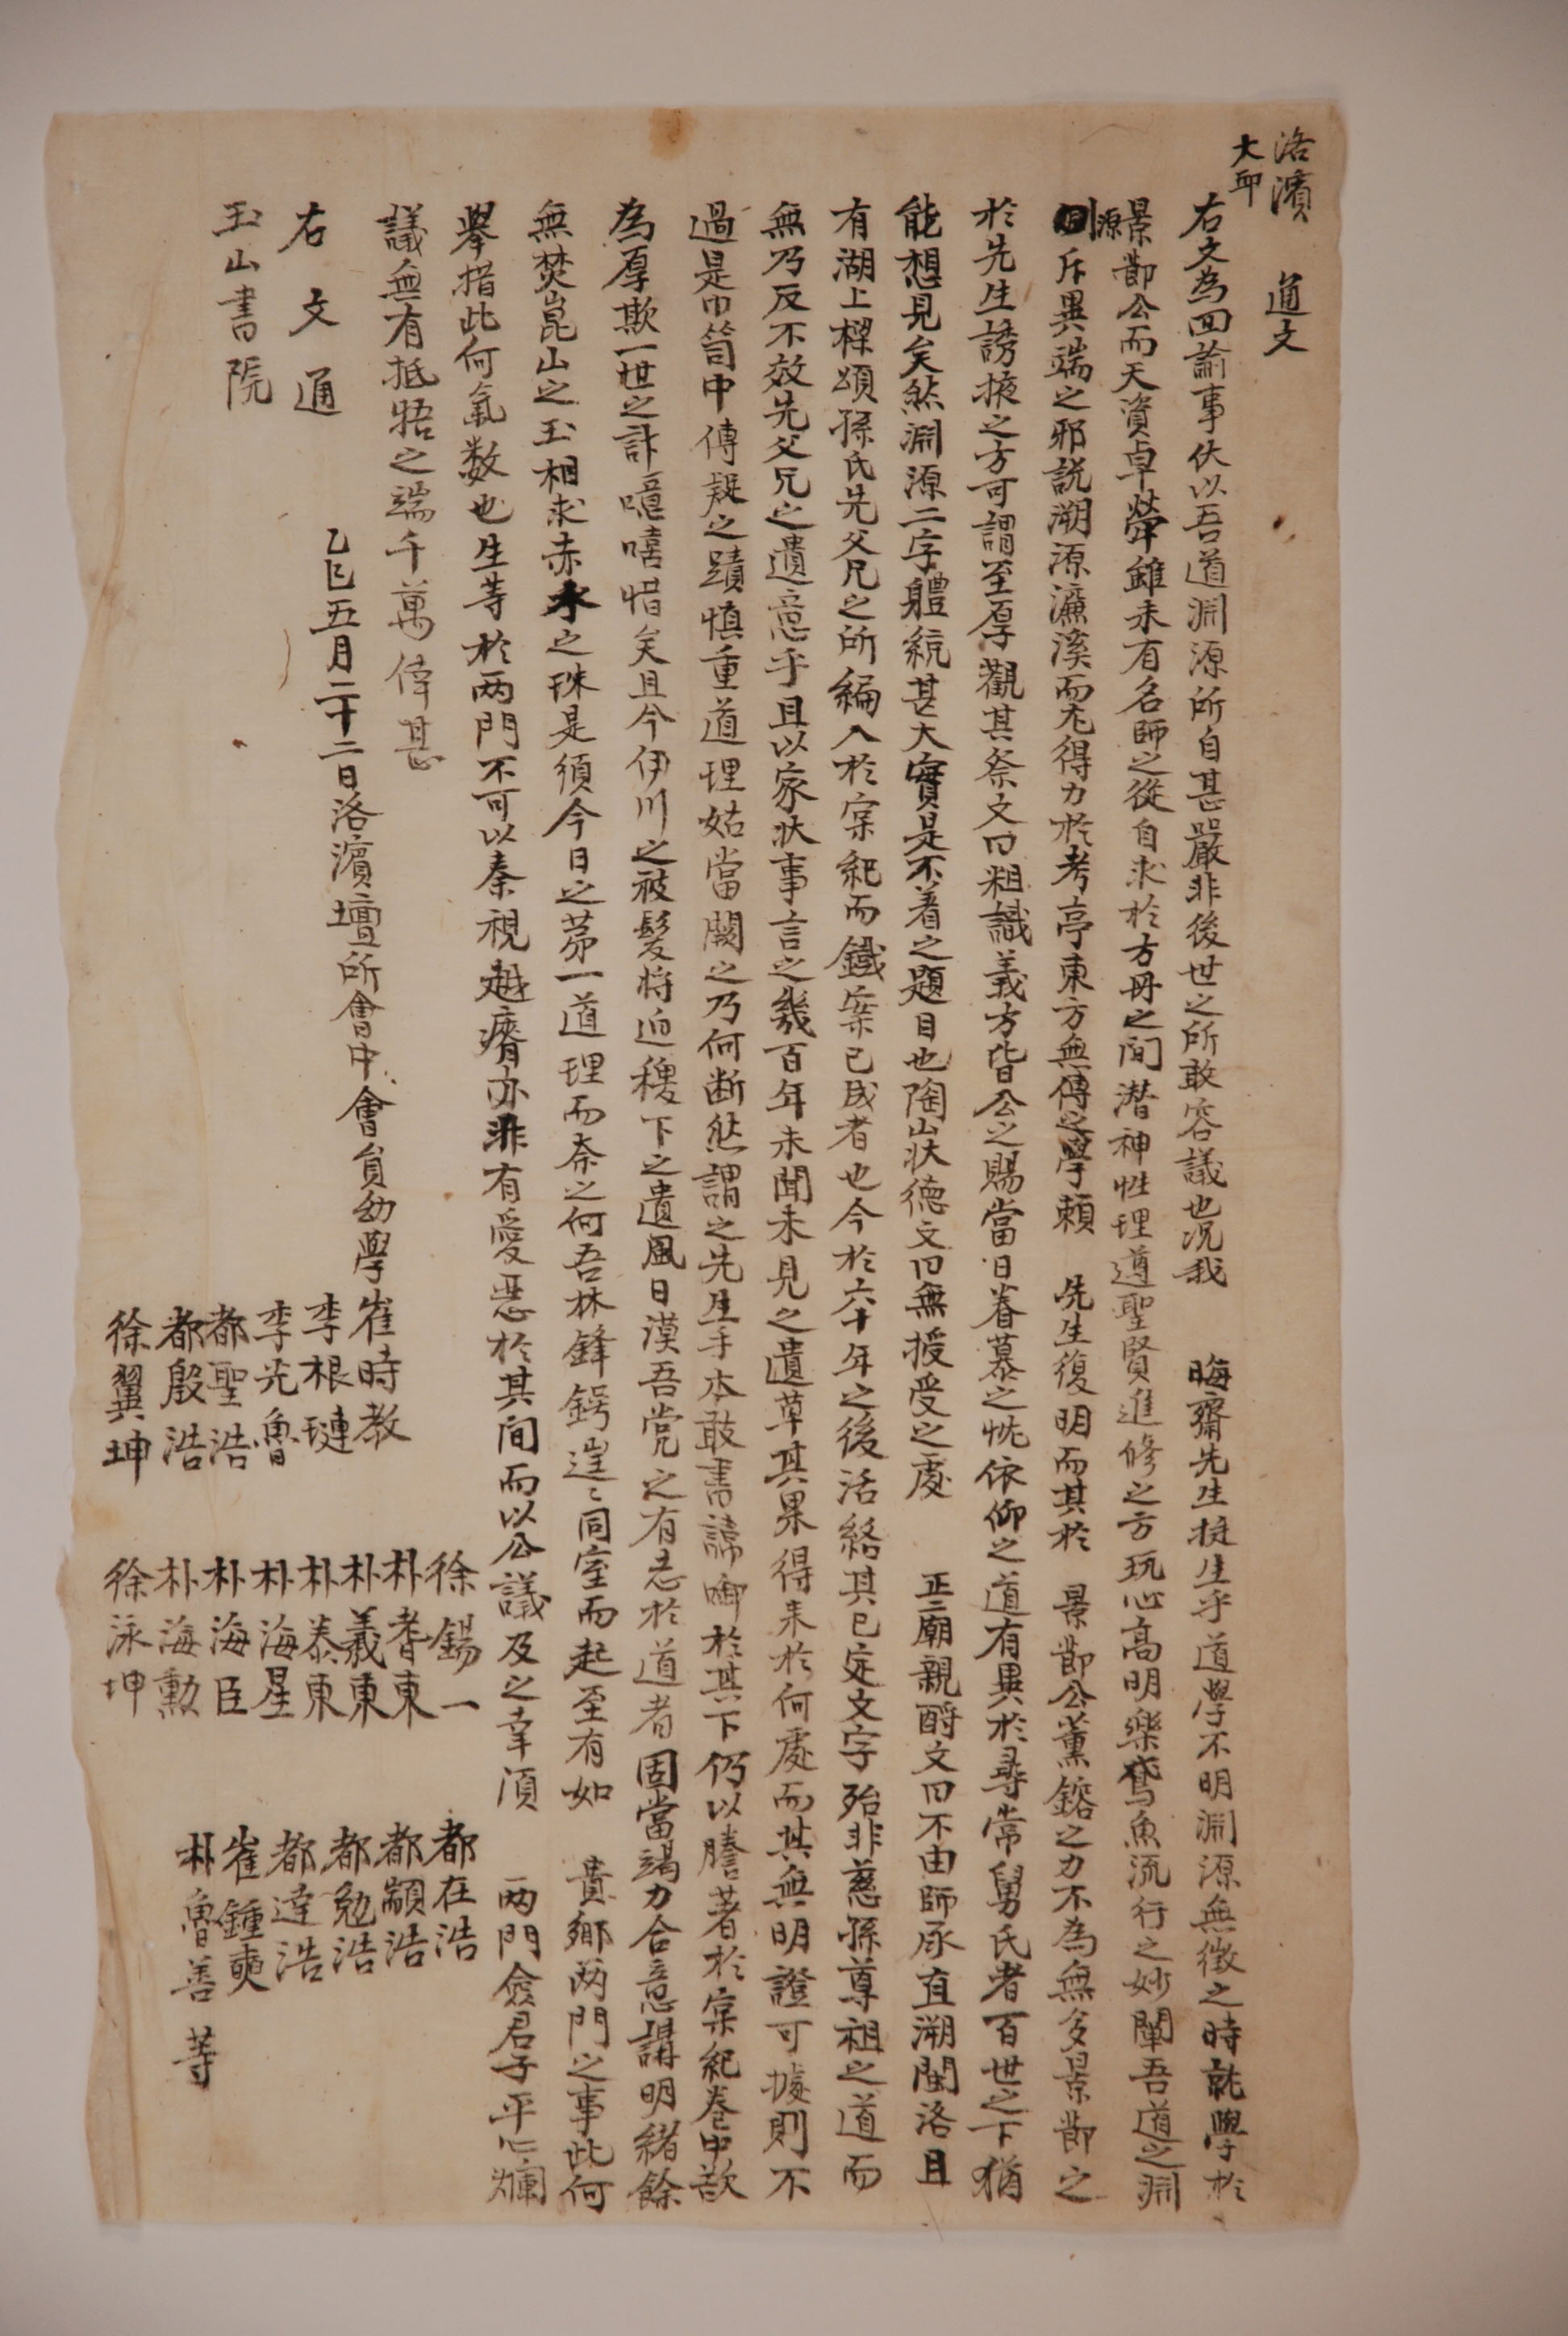 洛濱 通文
大卽
右文為回諭事伏以吾道淵源所自甚嚴非後世之所敢容議也況我 晦齋先生挺生乎道學不明淵源無徵之時就學於
景節公而天資卓犖雖未有名師之從自求於方冊之間潛神性理遵聖賢進修之方玩心高明樂鳶魚流行之妙闡吾道之淵
源斥異端之邪說溯源濂溪而尤得力於考亭東方無傳之學賴 先生復明而其於 景節公薰鎔之力不為無多景節之
於先生誘掖之方可謂至厚觀其祭文曰粗識義方皆公之賜當日眷慕之忱依仰之道有異於尋常舅氏者百世之下猶
能想見矣然淵源二字體統甚大實是不着之題目也陶山狀德文曰無授受之處 正廟親酹文曰不由師承直溯閩洛且
有湖上樑頌孫氏先父兄之所編入於宲紀而鐵案已成者也今於六十年之後活絡其已定文字殆非慈孫尊祖之道而
無乃反不效先父兄之遺意乎且以家狀事言之幾百年未聞未見之遺草其果得來於何處而其無明證可據則不
過是巾笥中傳疑之蹟愼重道理姑當闕之乃何断然謂之先生手本敢書諱啣於其下仍以謄著於宲紀卷中歆
為厚欺一世之計噫嘻惜矣且今伊川之被髮將迫稷下之遺風日漠吾党之有志於道者固當竭力合意講明緖餘
無焚崑山之玉相求赤水之珠是須今日之苐一道理而奈之何吾林鋒鍔崖〻同室而起至有如 貴鄕两門之事此何
擧措此何氣数也生等於两門不可以秦視越瘠亦非有愛惡於其间而以公議及之幸須 两門僉君子平心爛
議無有抵牾之端千萬倖甚
乙巳五月二十二日洛濱壇所會中會員幼學崔時敎 徐錫一 都在浩
李根璉 朴耆東 都顓浩
李光魯 朴羲東 都勉浩
都聖浩 朴泰東 都達浩
都殷浩 朴海星 崔鍾奭
徐翼坤 朴海臣 朴魯善 等
朴海勳
徐泳坤
右文通
玉山書院